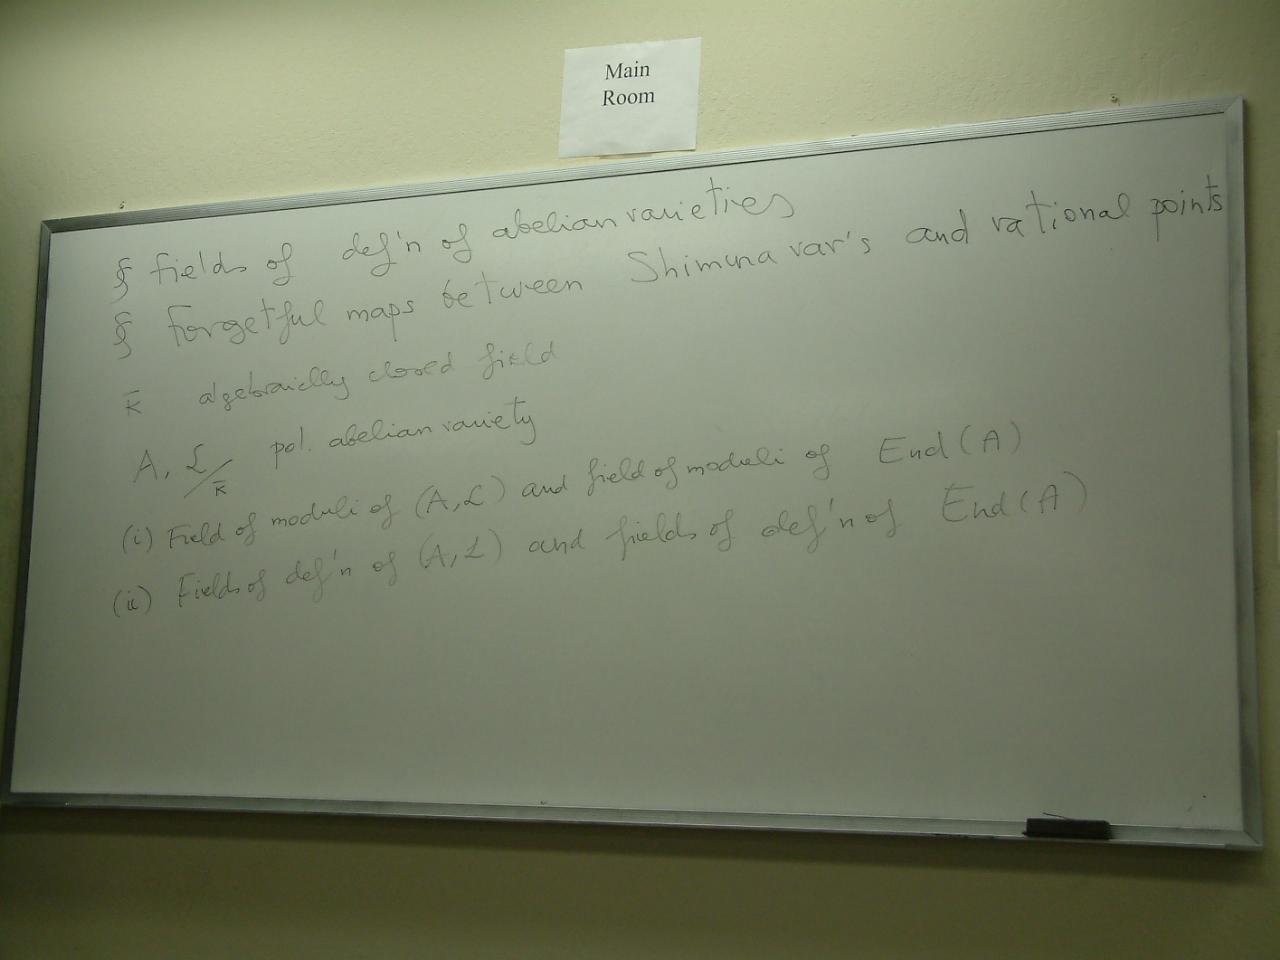 Main
Room
§ fields of def'n of abelian varieties
§ Forgetful maps between Shimura var's and rational points
k̅ algebraiclly closed field
A, ℒ/k̅ pol. abelian variety
(i) Field of moduli of (A, ℒ) and field of moduli of End(A)
(ii) Fields of def'n of (A, ℒ) and fields of def'n of End(A)